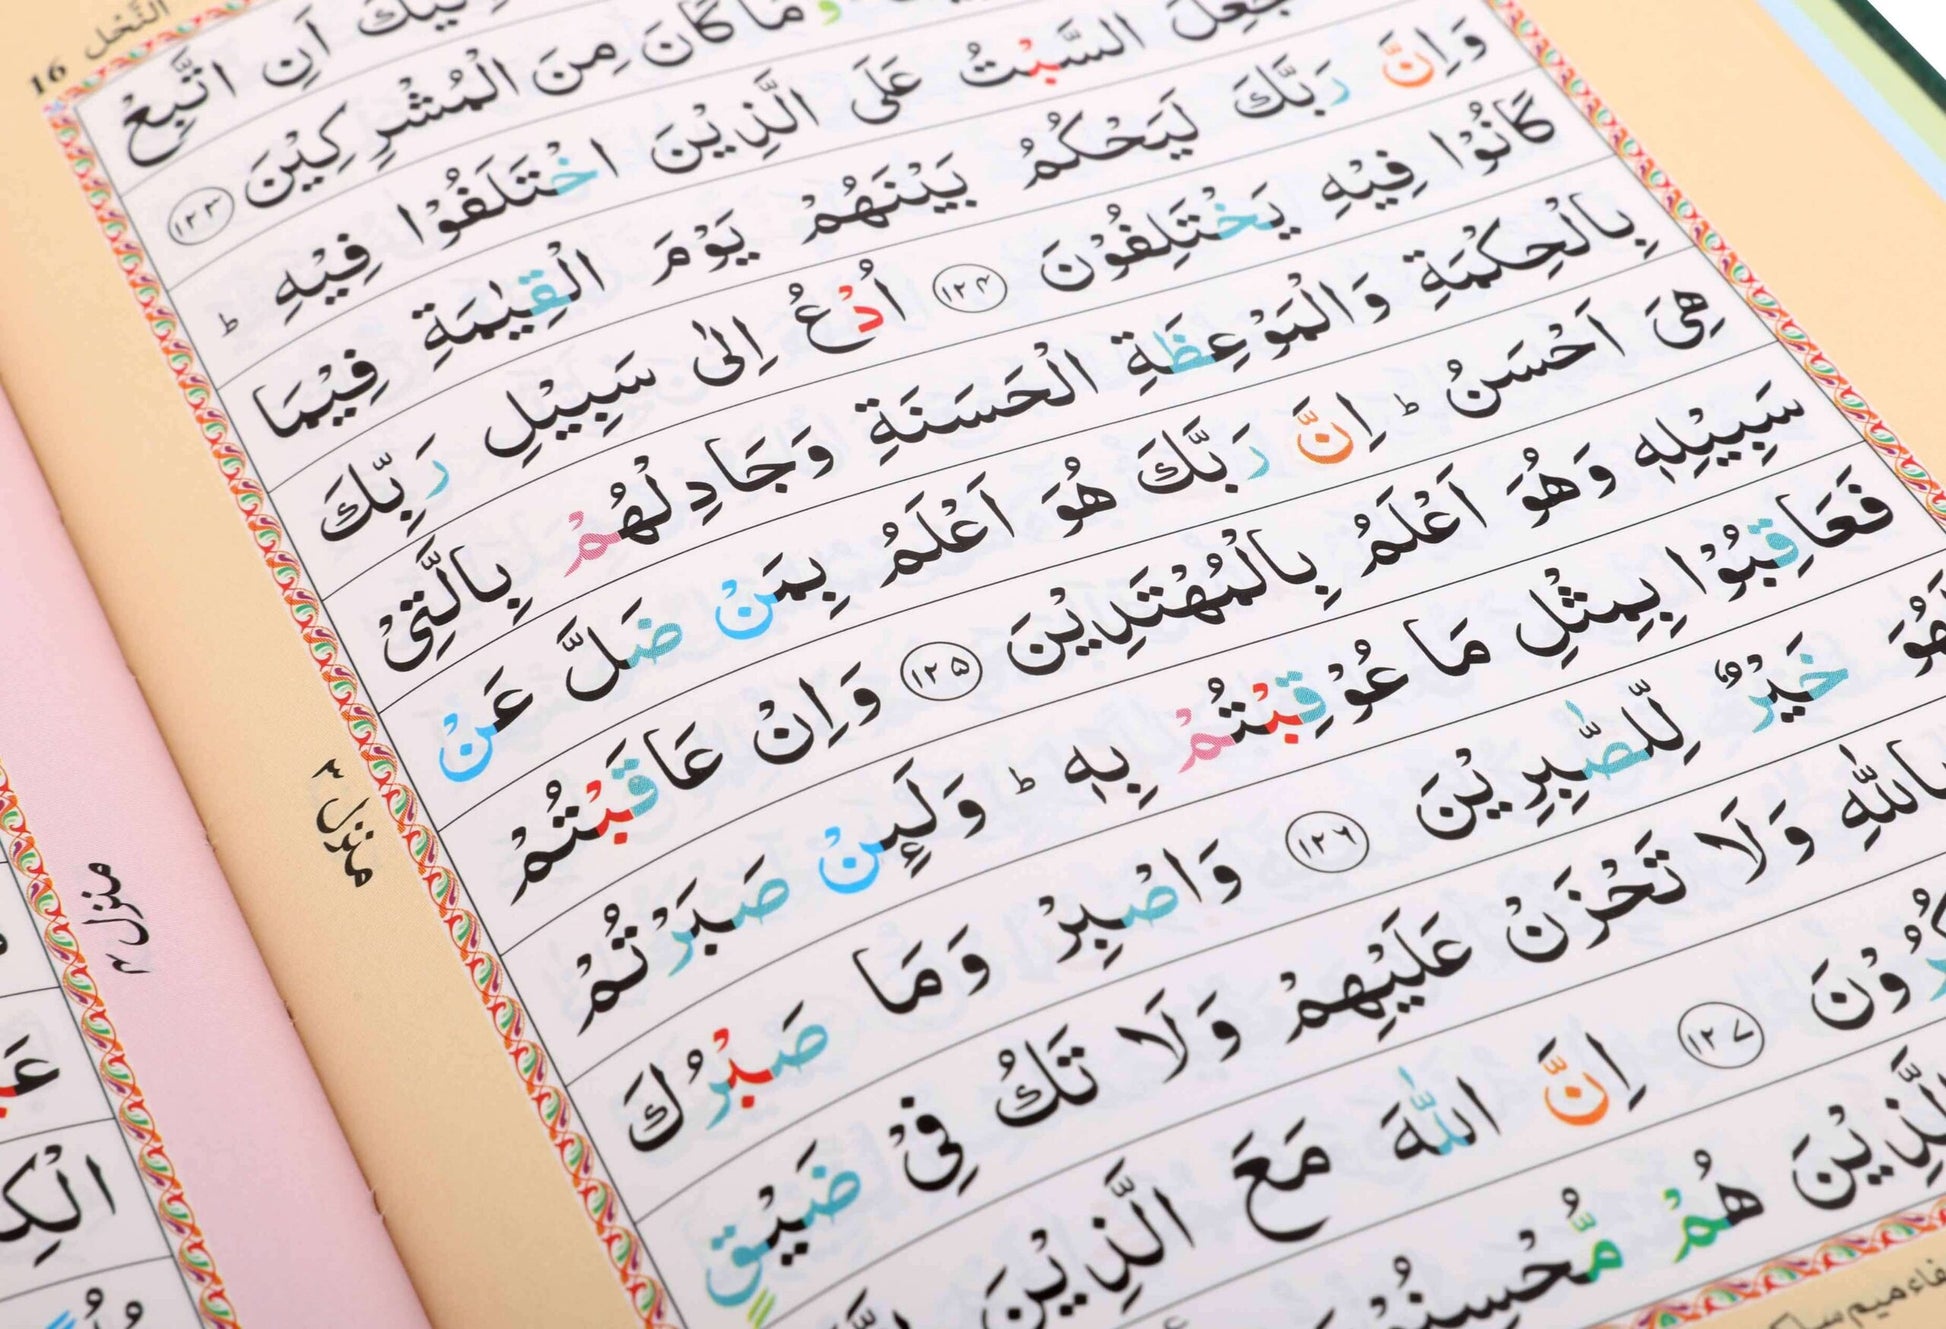 النَّحل 16
اَنِ اتَّبِعْ
وَمَا كَانَ مِنَ الْمُشْرِكِيْنَ ۝۱۲۳
جُعِلَ السَّبْتُ عَلَى الَّذِيْنَ اخْتَلَفُوْا فِيْهِ ؕ
وَاِنَّ رَبَّكَ لَيَحْكُمُ بَيْنَهُمْ يَوْمَ الْقِيٰمَةِ فِيْمَا
كَانُوْا فِيْهِ يَخْتَلِفُوْنَ ۝۱۲۴ اُدْعُ اِلٰى سَبِيْلِ رَبِّكَ
بِالْحِكْمَةِ وَالْمَوْعِظَةِ الْحَسَنَةِ وَجَادِلْهُمْ بِالَّتِيْ
هِيَ اَحْسَنُ ؕ اِنَّ رَبَّكَ هُوَ اَعْلَمُ بِمَنْ ضَلَّ عَنْ
سَبِيْلِهٖ وَهُوَ اَعْلَمُ بِالْمُهْتَدِيْنَ ۝۱۲۵ وَاِنْ عَاقَبْتُمْ
فَعَاقِبُوْا بِمِثْلِ مَا عُوْقِبْتُمْ بِهٖ ؕ وَلَىِٕنْ صَبَرْتُمْ
لَهُوَ خَيْرٌ لِّلصّٰبِرِيْنَ ۝۱۲۶ وَاصْبِرْ وَمَا صَبْرُكَ
بِاللّٰهِ وَلَا تَحْزَنْ عَلَيْهِمْ وَلَا تَكُ فِيْ ضَيْقٍ
۝۱۲۷ اِنَّ اللّٰهَ مَعَ الَّذِيْنَ
الَّذِيْنَ هُمْ مُّحْسِنُوْنَ
منزل ۳
منزل ۳
الْكِ